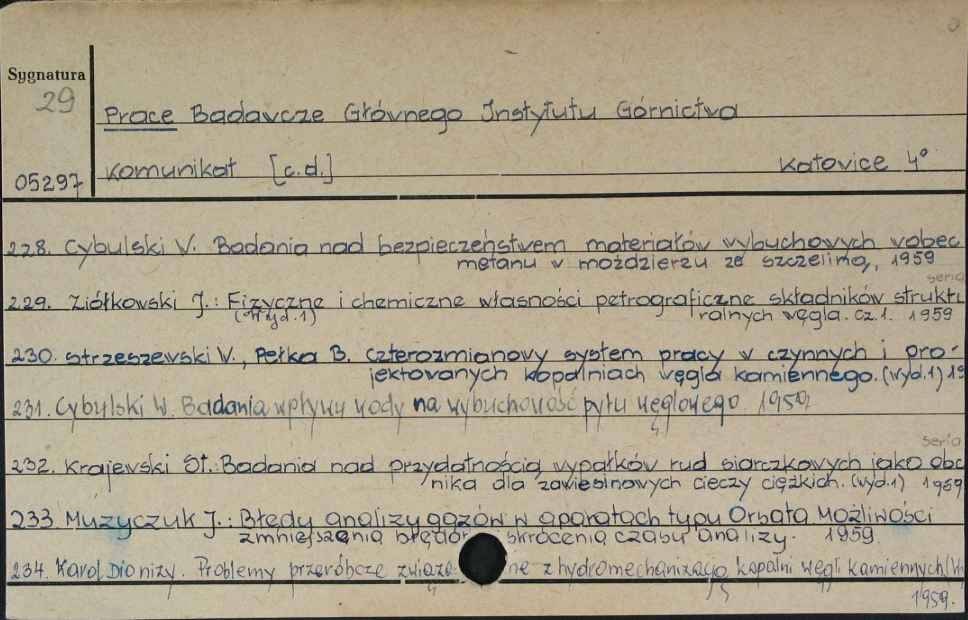 Sygnatura
29
Prace Badawcze Głównego Instytutu Górnictwa
05297
Komunikat [c.d.] Katowice 4°
228. Cybulski W. Badania nad bezpieczeństwem materiałów wybuchowych wobec
metanu w moździerzu ze szczeliną, 1959
seria
229. Ziółkowski J.: Fizyczne i chemiczne własności petrograficzne składników struktu
(Wyd.1) ralnych węgla. cz.1. 1959
230. Strzeszewski W., Pełka B. Czterozmianowy system pracy w czynnych i pro-
jektowanych kopalniach węgla kamiennego. (wyd.1) 19
231. Cybulski W. Badania wpływu wody na wybuchowość pyłu węglowego 1959
seria
232. Krajewski St.: Badania nad przydatnością wypałków rud siarczkowych jako obc
nika dla zawiesinowych cieczy ciężkich. (wyd.1) 1959
233. Muzyczuk J.: Błędy analizy gazów w aparatach typu Orsata Możliwości
zmniejszenia błędów skrócenia czasu analizy. 1959.
234. Karol Dionizy. Problemy przeróbcze związane z hydromechanizacją kopalni węgli kamiennych (W
1959.